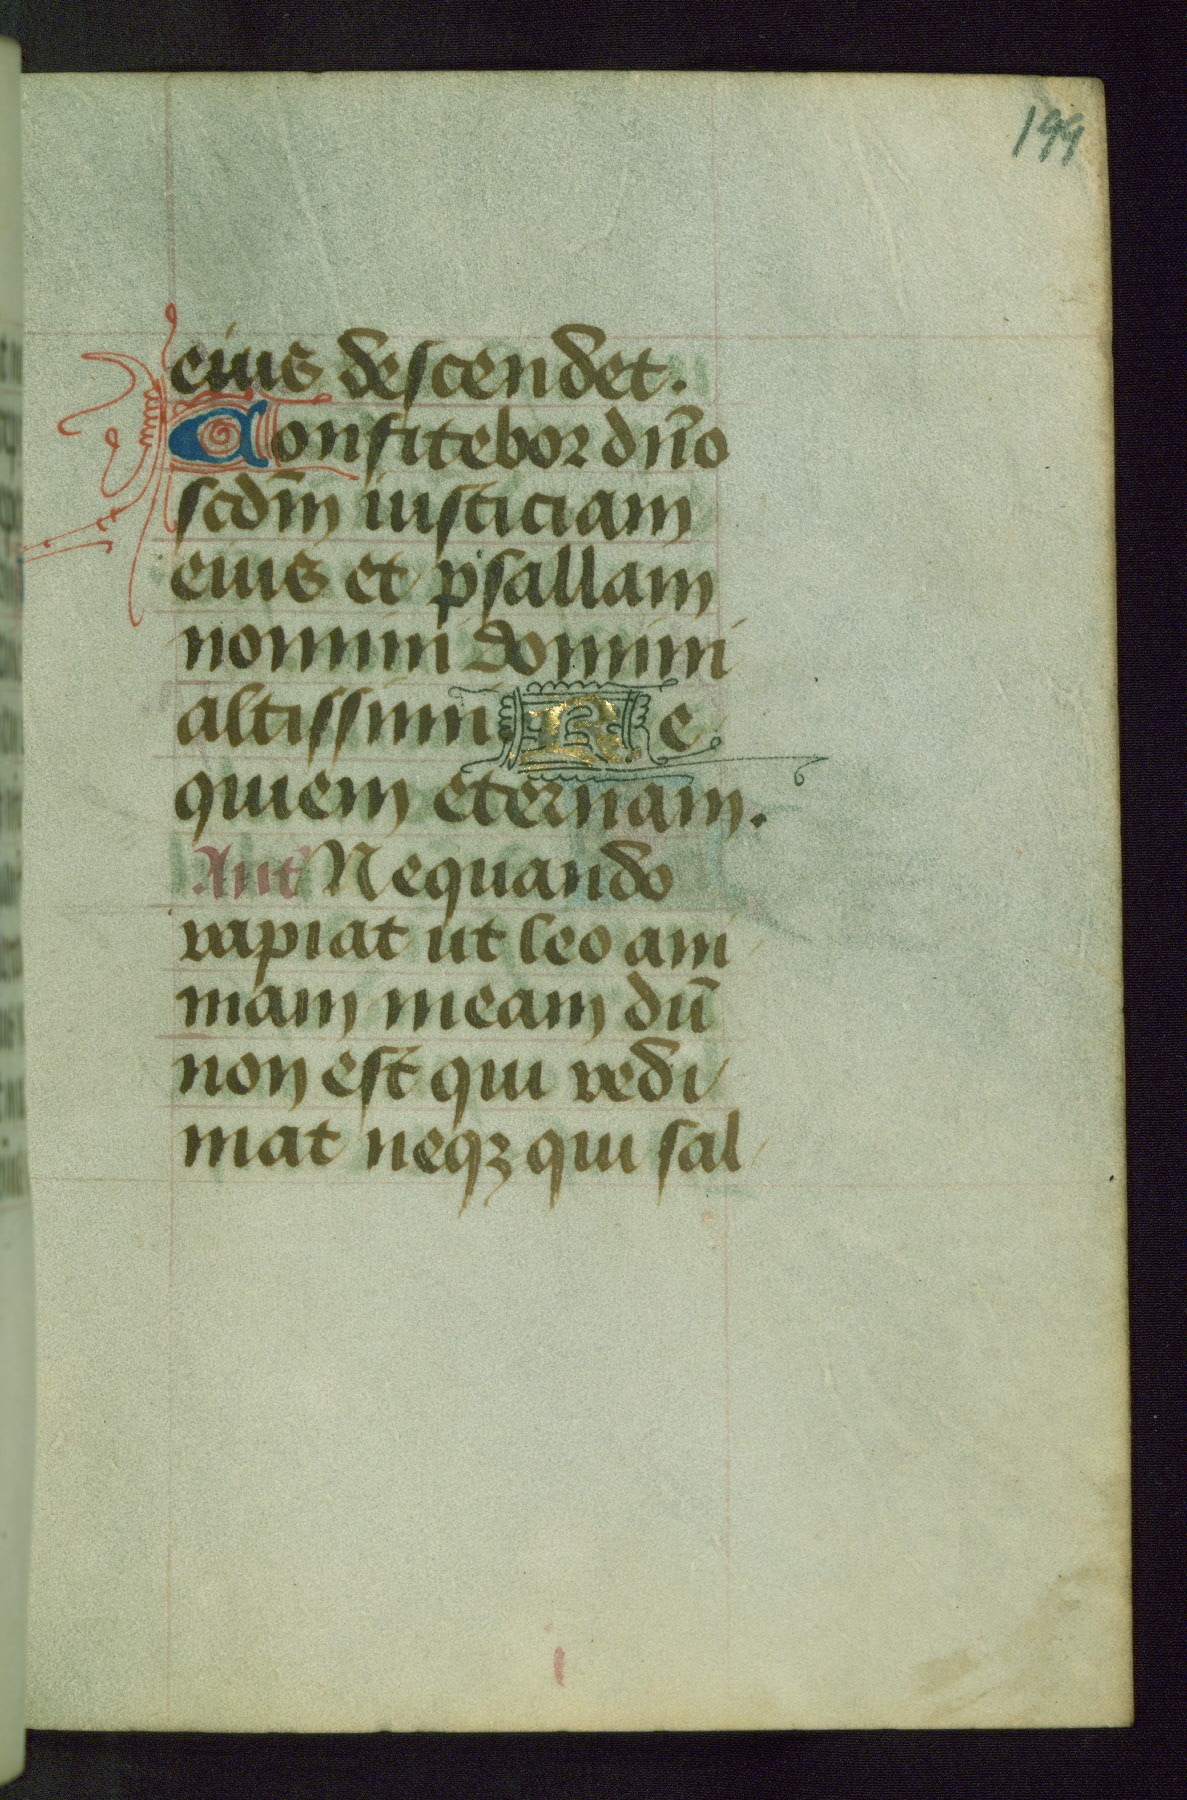 199
eius descendet.
Confitebor dn̄o
scdm̄ iusticiam
eius et psallam
nomini domini
altissimi Re
quiem eternam.
Ant Nequando
rapiat ut leo ani
mam meam dū
non est qui redi
mat neqꝫ qui sal